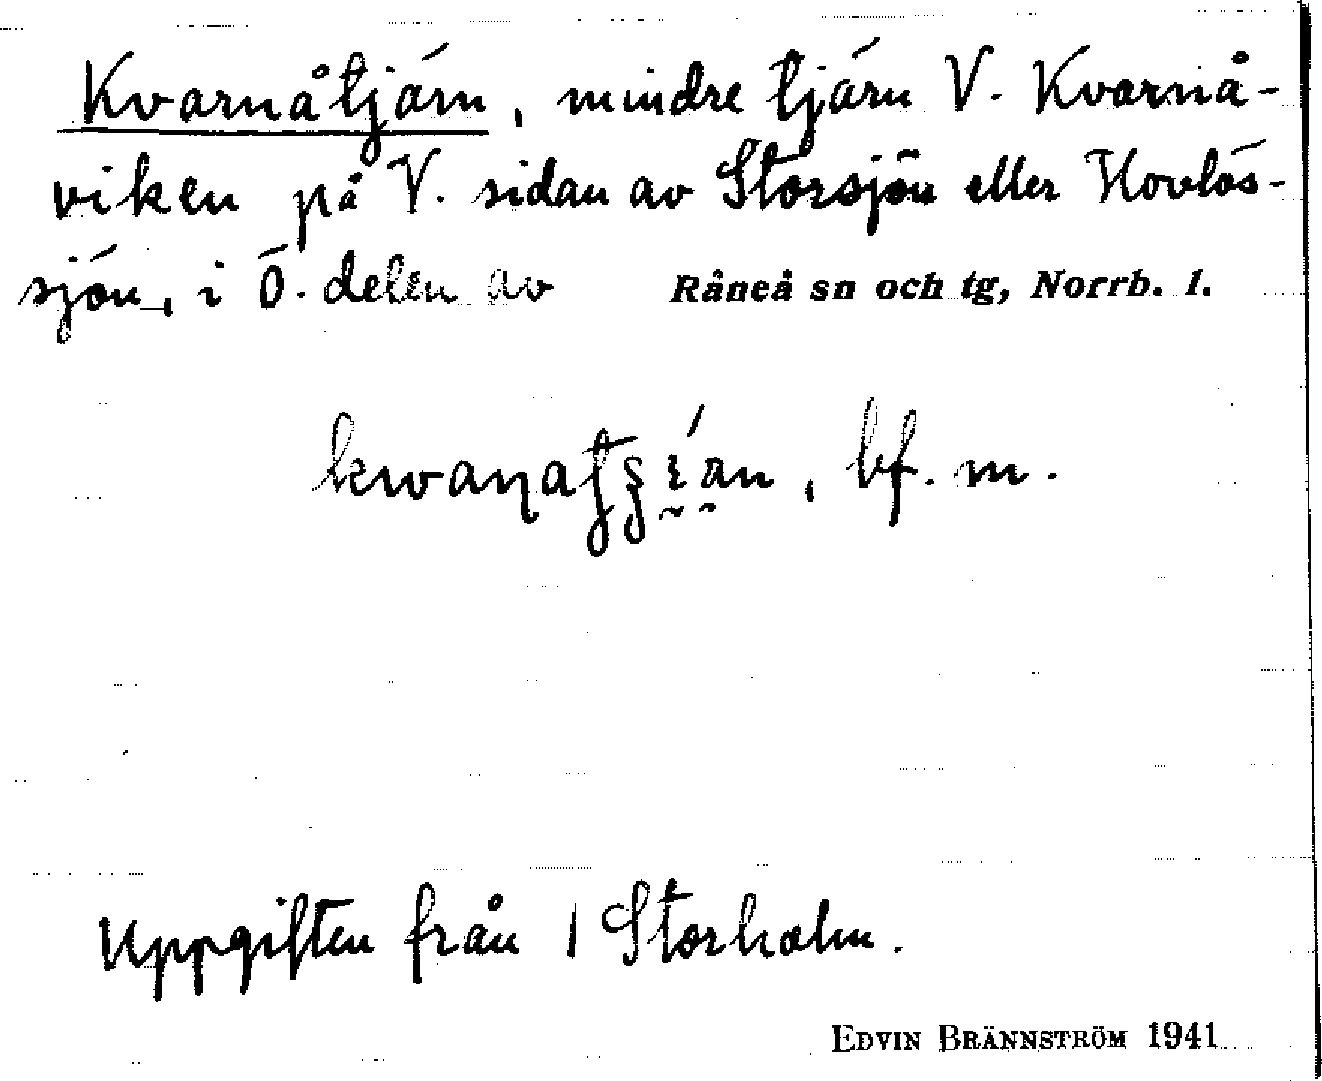 Kvarnåtjärn, mindre tjärn V. Kvarnå-
viken på V. sidan av Storsjön eller Hovlös-
sjön, i Ö. delen av Råneå sn och tg, Norrb. l.
bf. m.
Uppgiften från 1 Storholm.
EDVIN BRÄNNSTRÖM 1941